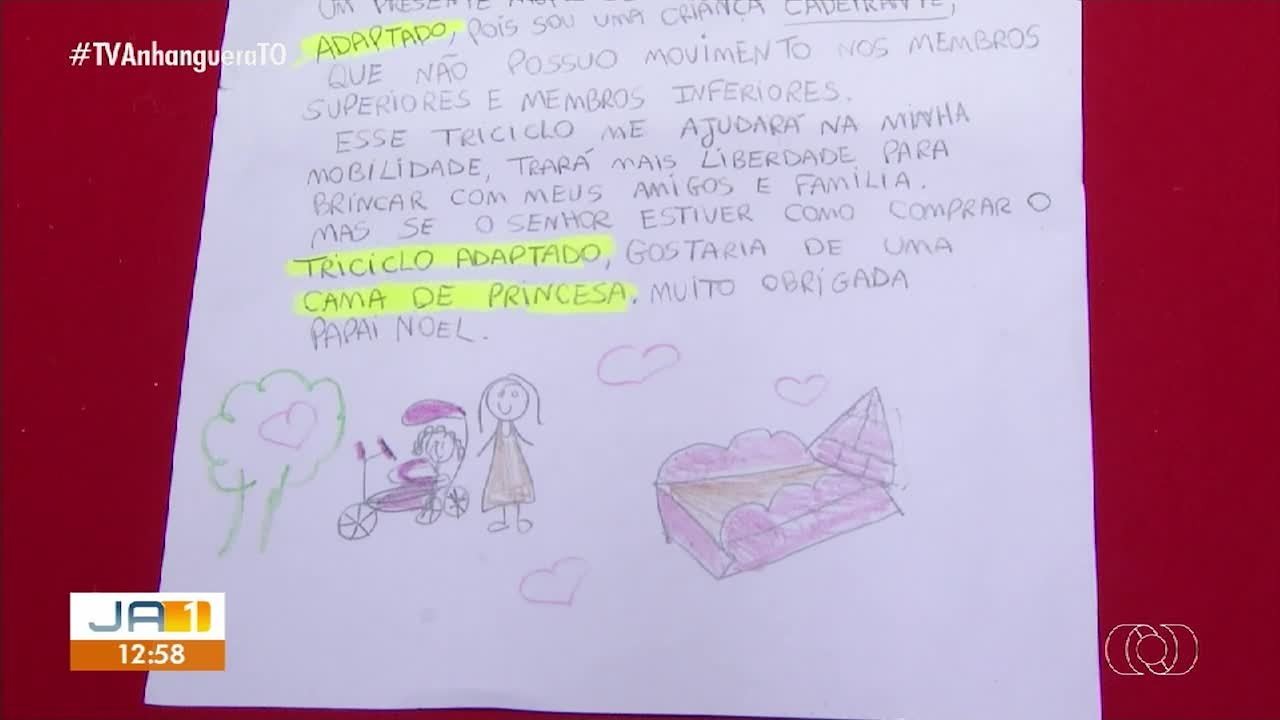 UM PRESENTE
ADAPTADO, POIS SOU UMA CRIANÇA CADEIRANTE,
#TVAnhangueraTO
QUE NÃO POSSUO MOVIMENTO NOS MEMBROS
SUPERIORES E MEMBROS INFERIORES.
ESSE TRICICLO ME AJUDARÁ NA MINHA
MOBILIDADE, TRARÁ MAIS LIBERDADE PARA
BRINCAR COM MEUS AMIGOS E FAMÍLIA.
MAS SE O SENHOR ESTIVER COMO COMPRAR O
TRICICLO ADAPTADO, GOSTARIA DE UMA
CAMA DE PRINCESA. MUITO OBRIGADA
PAPAI NOEL.
JA1
12:58